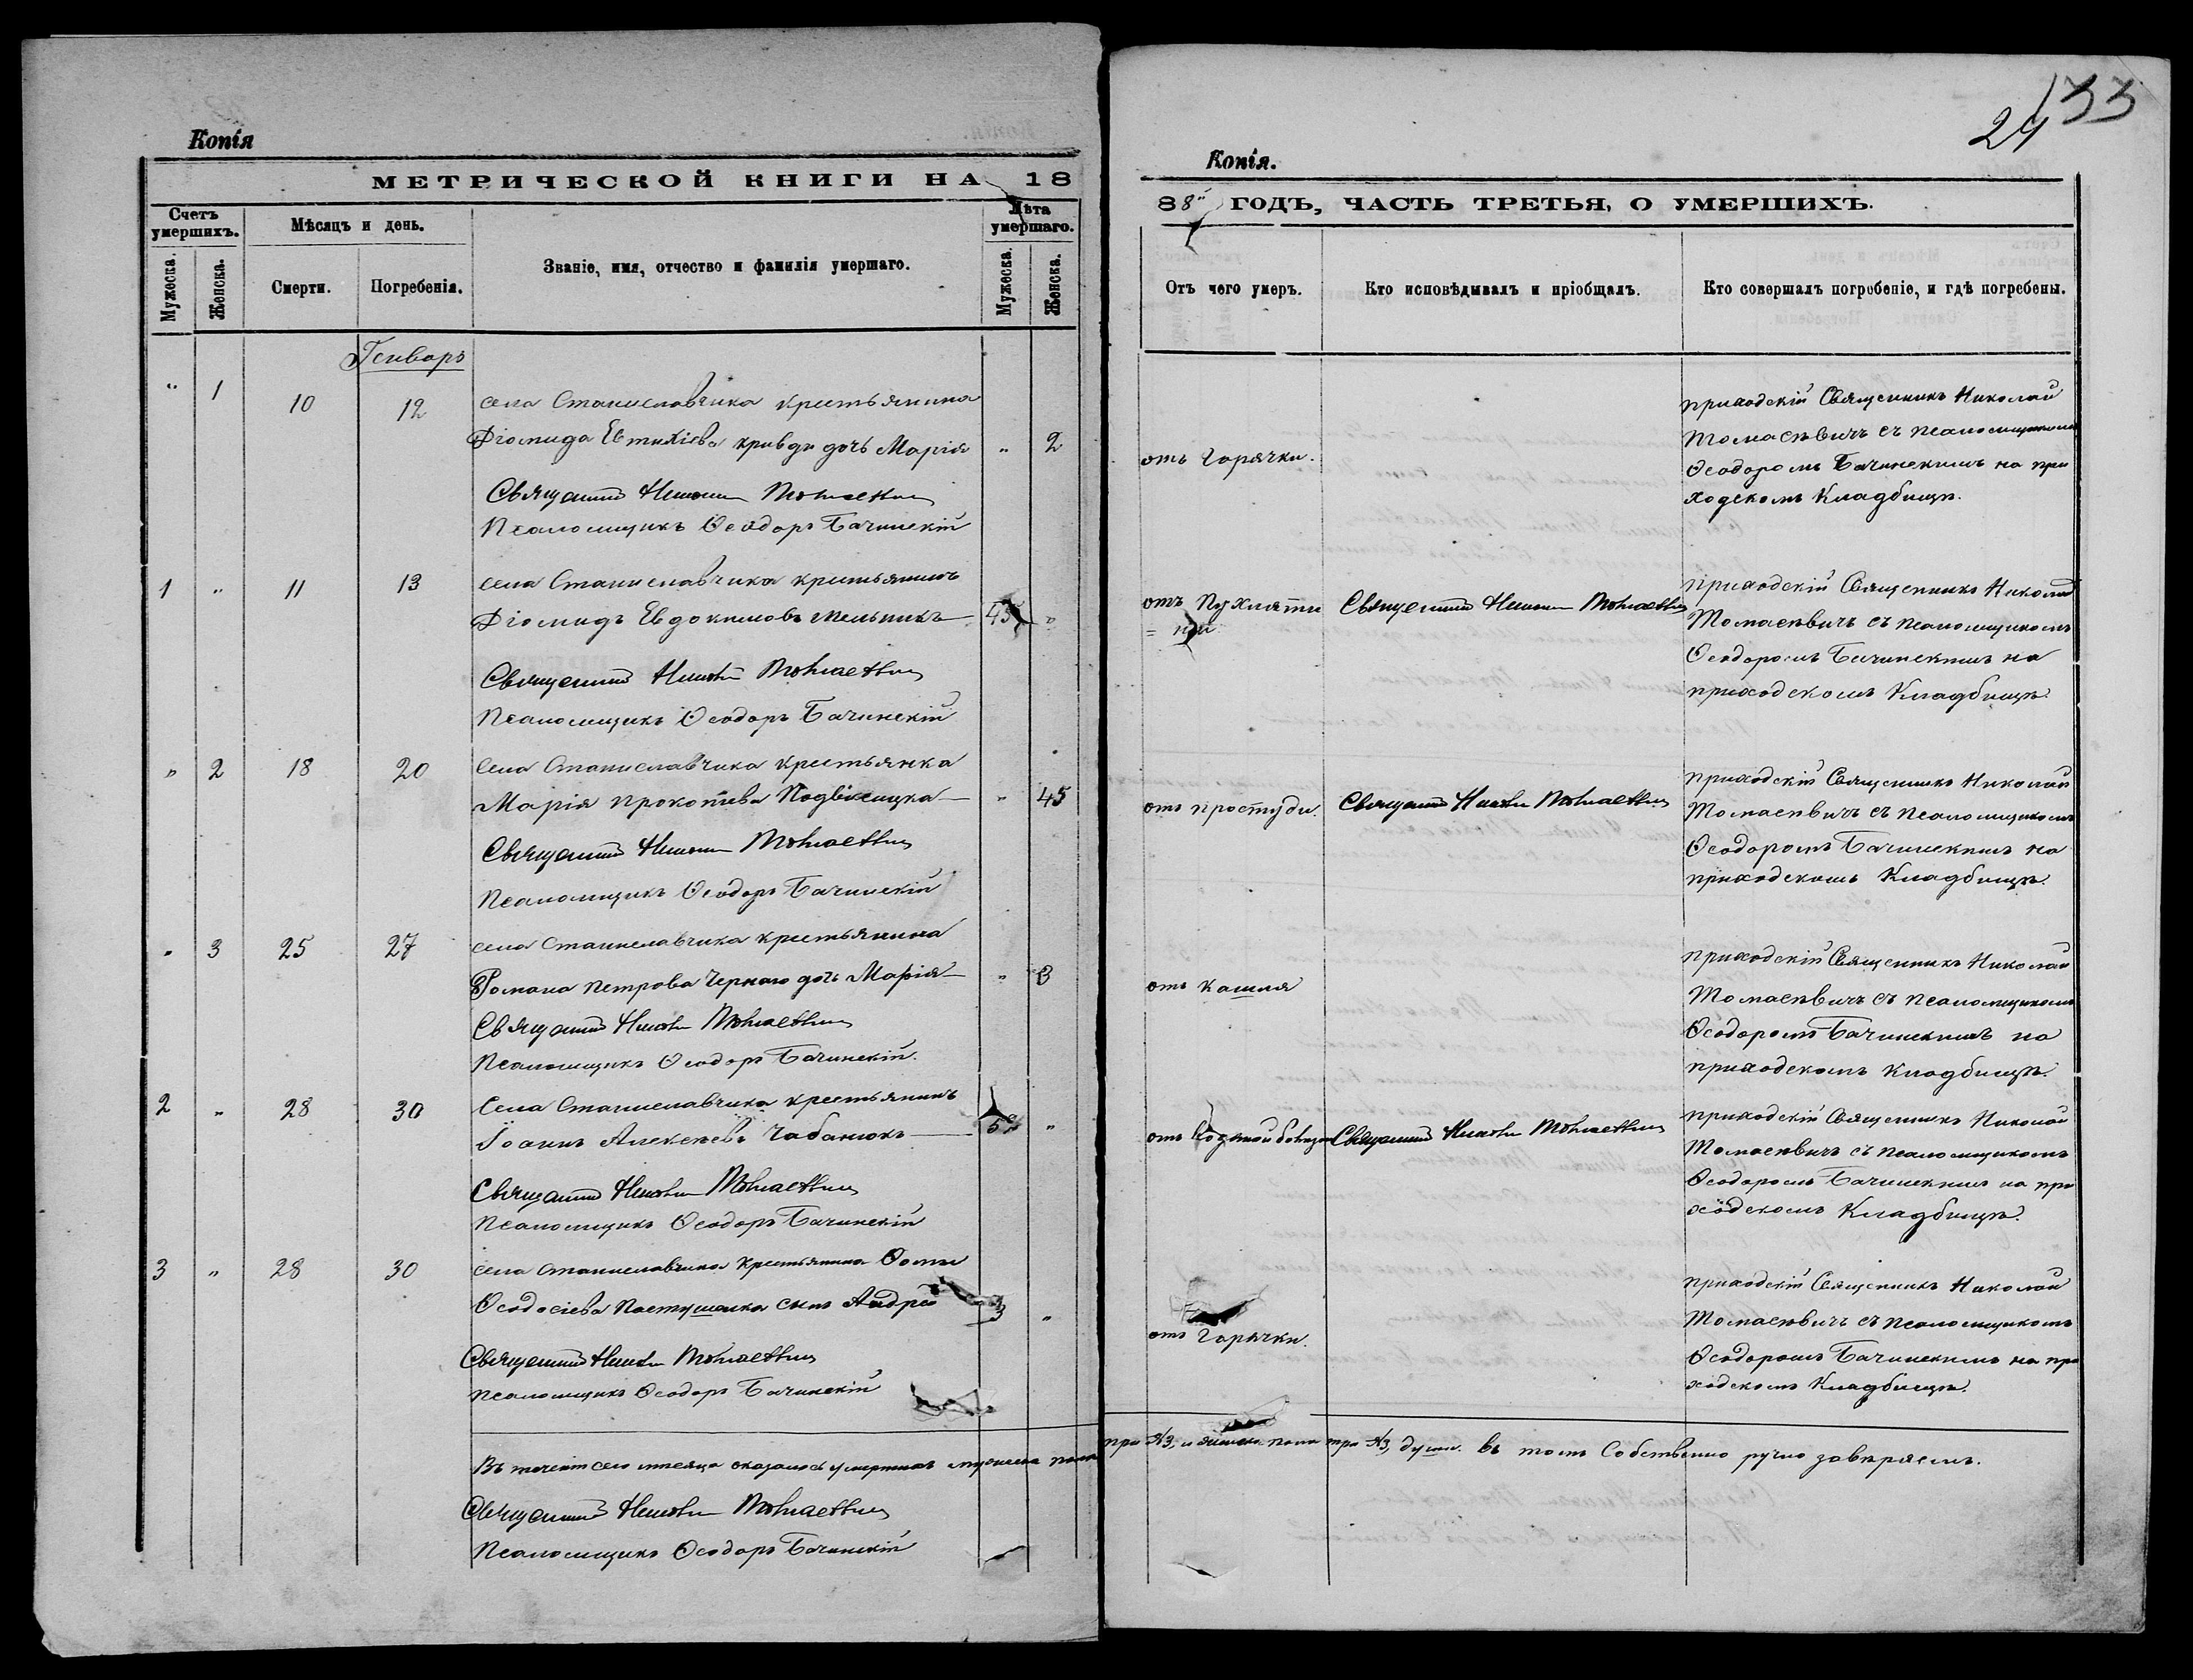 Копія
МЕТРИЧЕСКОЙ КНИГИ НА 18
Счетъ умершихъ.
Мѣсяцъ и день.
Званіе, имя, отчество и фамилія умершаго.
Лѣта умершаго.
Мужеска.
Женска.
Смерти.
Погребенія.
Мужеска.
Женска.
Генварь
" 1 10 12 села Станиславчика крестьянина
Діомида Евтихіева кривди дочь Марія " 2
Священникъ Николай Томасевич
Псаломщикъ Ѳеодоръ Бачинскій
1 " 11 13 села Станиславчика крестьянинъ
Діомидъ Евдокимовъ Мельникъ 45 "
Священникъ Николай Томасевич
Псаломщикъ Ѳеодоръ Бачинскій
" 2 18 20 села Станиславчика крестьянка
Марія Прокопіева " 45
Священникъ Николай Томасевич
Псаломщикъ Ѳеодоръ Бачинскій
" 3 25 27 села Станиславчика крестьянина
Романа Петрова Чернаго дочь Марія " 3
Священникъ Николай Томасевич
Псаломщикъ Ѳеодоръ Бачинскій.
2 " 28 30 села Станиславчика крестьянинъ
Іоаннъ Алексѣевъ Чабанюкъ "
Священникъ Николай Томасевич
Псаломщикъ Ѳеодоръ Бачинскій
3 " 28 30 села Станиславчика крестьянина Ѳомы
Ѳеодосіева Пастушенка сынъ Андрей 3 "
Священникъ Николай Томасевич
Псаломщикъ Ѳеодоръ Бачинскій
Въ теченіи сего мѣсяца оказалось умершихъ мужеска пола
Священникъ Николай Томасевич
Псаломщикъ Ѳеодоръ Бачинскій
24 133
Копія.
88 ГОДЪ, ЧАСТЬ ТРЕТЬЯ, О УМЕРШИХЪ.
Отъ чего умеръ.
Кто исповѣдывалъ и пріобщалъ.
Кто совершалъ погребеніе, и гдѣ погребены.
отъ Горячки.
приходскій Священникъ Николай
Томасѣвичъ съ псаломщикомъ
Ѳеодоромъ Бачинскимъ на при
ходскомъ Кладбищѣ.
отъ Пухляти
= ни
Священникъ Николай Томасевич
приходскій Священникъ Николай
Томасѣвичъ съ псаломщикомъ
Ѳеодоромъ Бачинскимъ на
приходскомъ Кладбищѣ.
отъ простуди.
Священникъ Николай Томасевич
приходскій Священникъ Николай
Томасѣвичъ съ псаломщикомъ
Ѳеодоромъ Бачинскимъ на
приходскомъ Кладбищѣ.
отъ кашля
приходскій Священникъ Николай
Томасѣвичъ съ псаломщикомъ
Ѳеодоромъ Бачинскимъ на
приходскомъ кладбищѣ.
отъ Водяной болѣзни
Священникъ Николай Томасевич
приходскій Священникъ Николай
Томасѣвичъ съ псаломщикомъ
Ѳеодоромъ Бачинскимъ на при
ходскомъ Кладбищѣ.
отъ Горячки.
приходскій Священникъ Николай
Томасѣвичъ съ псаломщикомъ
Ѳеодоромъ Бачинскимъ на при
ходскомъ Кладбищѣ.
три №3, и женска пола три №3, душ. въ томъ Собственно ручно завѣряемъ.